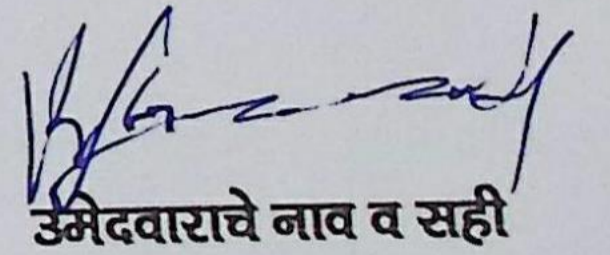 उमेदवाराचे नाव व सही